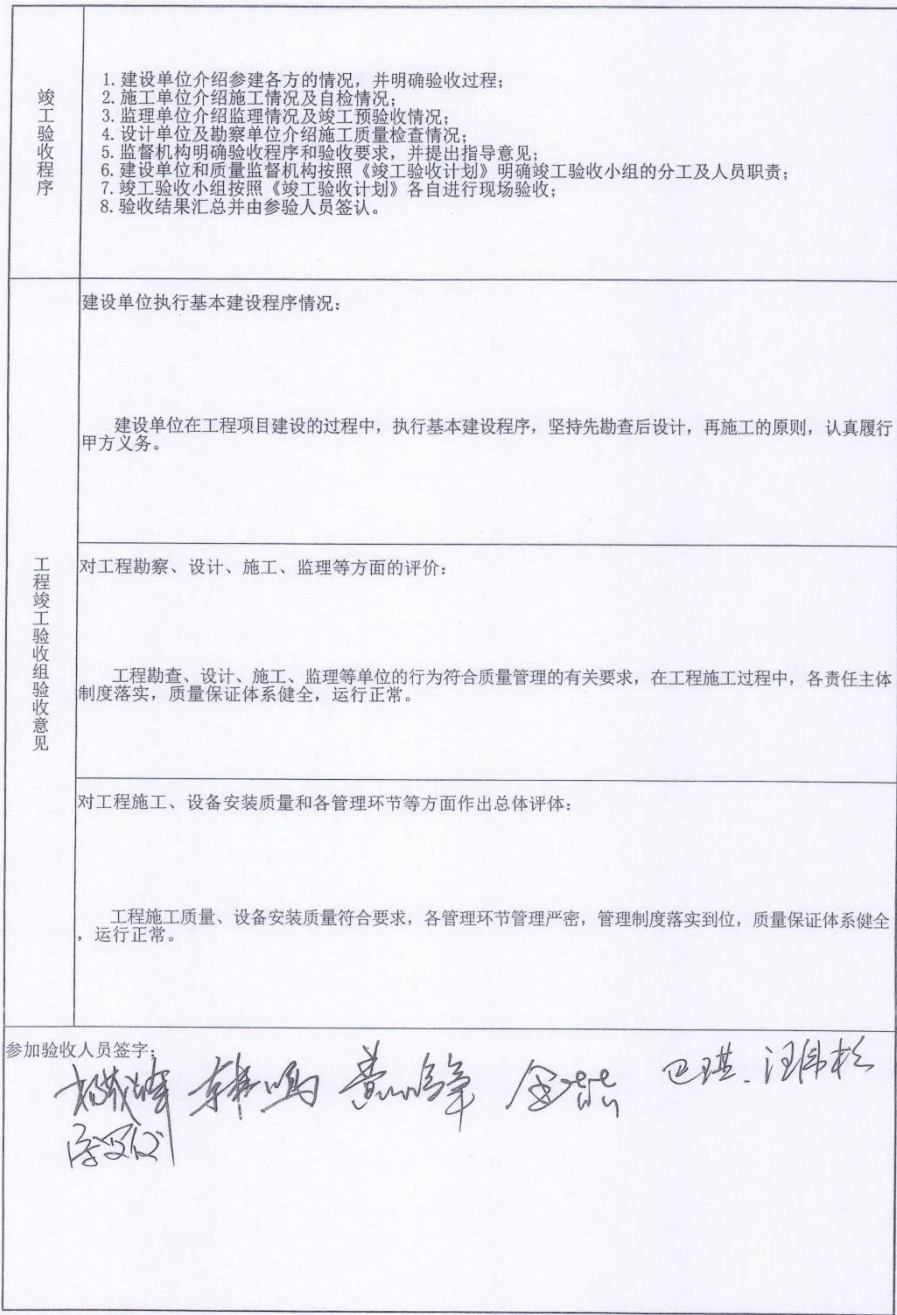 竣工验收程序
1. 建设单位介绍参建各方的情况，并明确验收过程；
2. 施工单位介绍施工情况及自检情况；
3. 监理单位介绍监理情况及竣工预验收情况；
4. 设计单位及勘察单位介绍施工质量检查情况；
5. 监督机构明确验收程序和验收要求，并提出指导意见；
6. 建设单位和质量监督机构按照《竣工验收计划》明确竣工验收小组的分工及人员职责；
7. 竣工验收小组按照《竣工验收计划》各自进行现场验收；
8. 验收结果汇总并由参验人员签认。
工程竣工验收组验收意见
建设单位执行基本建设程序情况：
建设单位在工程项目建设的过程中，执行基本建设程序，坚持先勘查后设计，再施工的原则，认真履行
甲方义务。
对工程勘察、设计、施工、监理等方面的评价：
工程勘查、设计、施工、监理等单位的行为符合质量管理的有关要求，在工程施工过程中，各责任主体
制度落实，质量保证体系健全，运行正常。
对工程施工、设备安装质量和各管理环节等方面作出总体评体：
工程施工质量、设备安装质量符合要求，各管理环节管理严密，管理制度落实到位，质量保证体系健全
，运行正常。
参加验收人员签字：